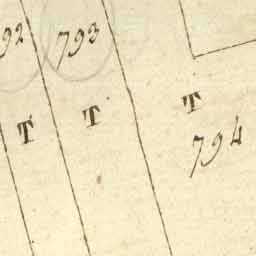 92
793
T
T
T
794